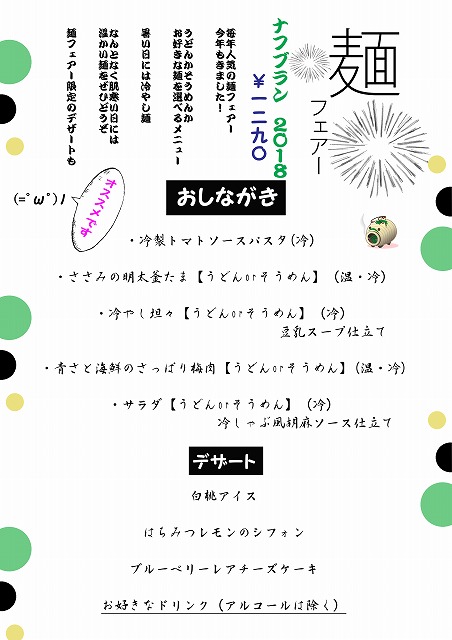 麺
フェアー
ナフブラン 2018
¥一二九〇
毎年人気の麺フェアー
今年もきました！
うどんかそうめんか
お好きな麺を選べるメニュー
暑い日には冷やし麺
なんとなく肌寒い日には
温かい麺をぜひどうぞ
麺フェアー限定のデザートも
オススメです
(=ﾟωﾟ)ﾉ
おしながき
・冷製トマトソースパスタ(冷)
・ささみの明太釜たま【うどんorそうめん】（温・冷）
・冷やし坦々【うどんorそうめん】（冷）
豆乳スープ仕立て
・青さと海鮮のさっぱり梅肉【うどんorそうめん】（温・冷）
・サラダ【うどんorそうめん】（冷）
冷しゃぶ風胡麻ソース仕立て
デザート
白桃アイス
はちみつレモンのシフォン
ブルーベリーレアチーズケーキ
お好きなドリンク（アルコールは除く）